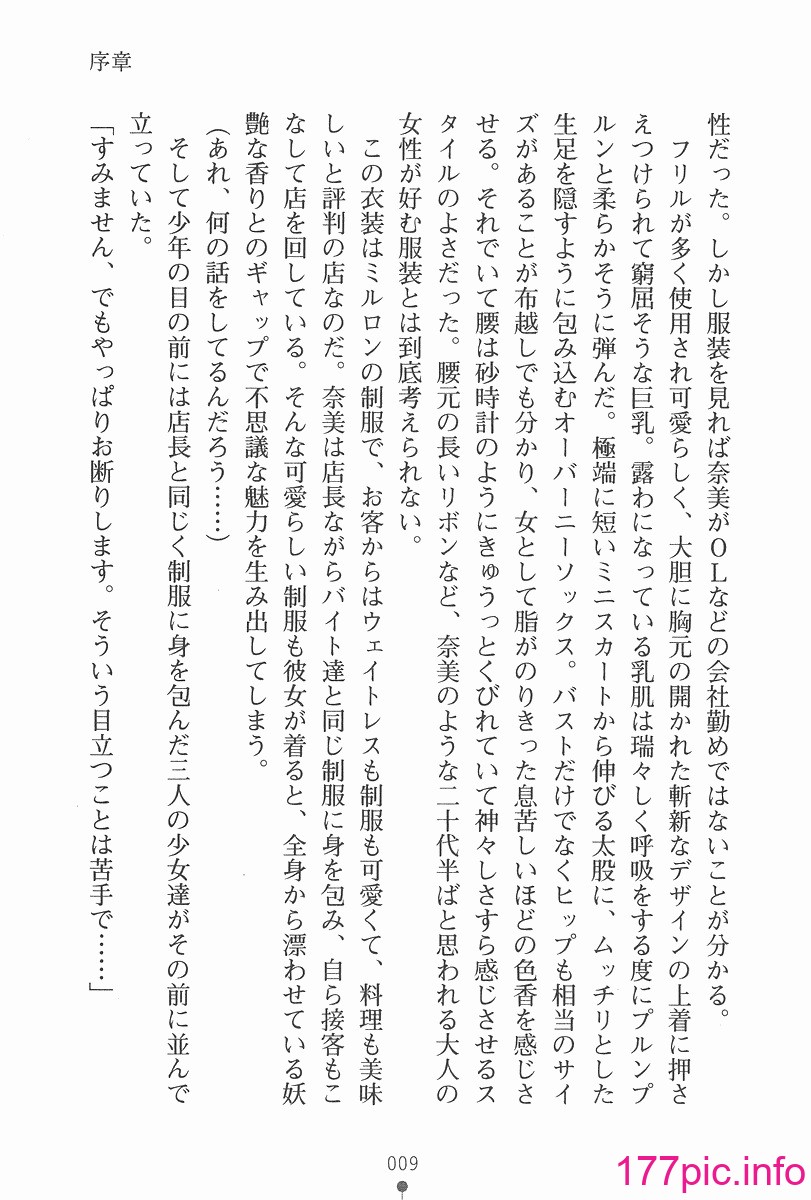 序章
性だった。しかし服装を見れば奈美がＯＬなどの会社勤めではないことが分かる。
　フリルが多く使用され可愛らしく、大胆に胸元の開かれた斬新なデザインの上着に押さ
えつけられて窮屈そうな巨乳。露わになっている乳肌は瑞々しく呼吸をする度にプルンプ
ルンと柔らかそうに弾んだ。極端に短いミニスカートから伸びる太股に、ムッチリとした
生足を隠すように包み込むオーバーニーソックス。バストだけでなくヒップも相当のサイ
ズがあることが布越しでも分かり、女として脂がのりきった息苦しいほどの色香を感じさ
せる。それでいて腰は砂時計のようにきゅうっとくびれていて神々しさすら感じさせるス
タイルのよさだった。腰元の長いリボンなど、奈美のような二十代半ばと思われる大人の
女性が好む服装とは到底考えられない。
　この衣装はミルロンの制服で、お客からはウェイトレスも制服も可愛くて、料理も美味
しいと評判の店なのだ。奈美は店長ながらバイト達と同じ制服に身を包み、自ら接客もこ
なして店を回している。そんな可愛らしい制服も彼女が着ると、全身から漂わせている妖
艶な香りとのギャップで不思議な魅力を生み出してしまう。
（あれ、何の話をしてるんだろう……）
　そして少年の目の前には店長と同じく制服に身を包んだ三人の少女達がその前に並んで
立っていた。
「すみません、でもやっぱりお断りします。そういう目立つことは苦手で……」
009
177pic.info